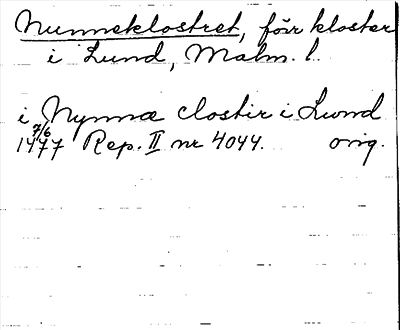 Nunneklostret, förr kloster
i Lund, Malm. l.
i Nynnæ closter i Lwnd
7/6
1477 Rep. II nr 4044. orig.